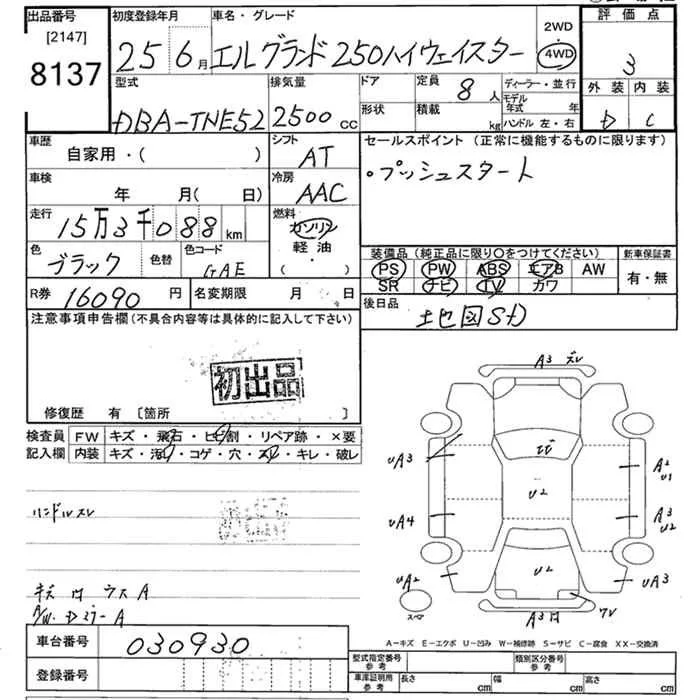 出品番号
[2147]
8137
初度登録年月
25 6月
車名・グレード
エルグランド250ハイウェイスター
2WD
・
4WD
評価点
3
外装 内装
D C
型式
DBA-TNE52
排気量
2500cc
ドア
形状
定員
8人
積載 kg
ディーラー・並行
モデル年式 年
ハンドル 左・右
車歴
自家用・( )
シフト
AT
車検
年 月( 日)
冷房
AAC
走行
15万3千088km
燃料
ガソリン
軽油
・( )
色
ブラック
色替
色コード
GAE
R券 16090円
名変期限 月 日
セールスポイント (正常に機能するものに限ります)
・プッシュスタート
装備品(純正品に限り○をつけてください)
PS PW ABS エアB AW
SR ナビ TV カワ
新車保証書
有・無
後日品
地図SD
注意事項申告欄(不具合内容等は具体的に記入して下さい)
初出品
修復歴 有 [箇所 ]
検査員記入欄
FW キズ・飛石・ヒビ割・リペア跡・×要
内装 キズ・汚れ・コゲ・穴・スレ・キレ・破レ
ハンドルスレ
A3 スレ
UA3
A2
U1
U2
UA4
A3
U2
UA2
U2
UA3
スペア
A3
ワレ
A/W・Dミラー A
車台番号 030930
登録番号
A－キズ E－エクボ U－凹み W－補修跡 S－サビ C－腐食 XX－交換済
型式指定番号参考
類別区分番号参考
車庫証明用参考
長さ cm
幅 cm
高さ cm